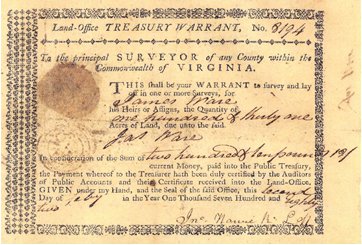 Land-Office TREASURY WARRANT, No. 8194
To the principal SURVEYOR of any County within the
Commonwealth of VIRGINIA.
THIS shall be your WARRANT to survey and lay
off in one or more Surveys, for
James Ware
his Heirs or Assigns, the Quantity of
one hundred & thirty one
Acres of Land, due unto the said
Jas Ware
In consideration of the Sum of two hundred & ten pounds
current Money, paid into the Public Treasury,
the Payment whereof to the Treasurer hath been duly certified by the Auditors
of Public Accounts and their Certificate received into the Land-Office.
GIVEN under my Hand, and the Seal of the said Office, this
Day of in the Year One Thousand Seven Hundred and Eighty
two